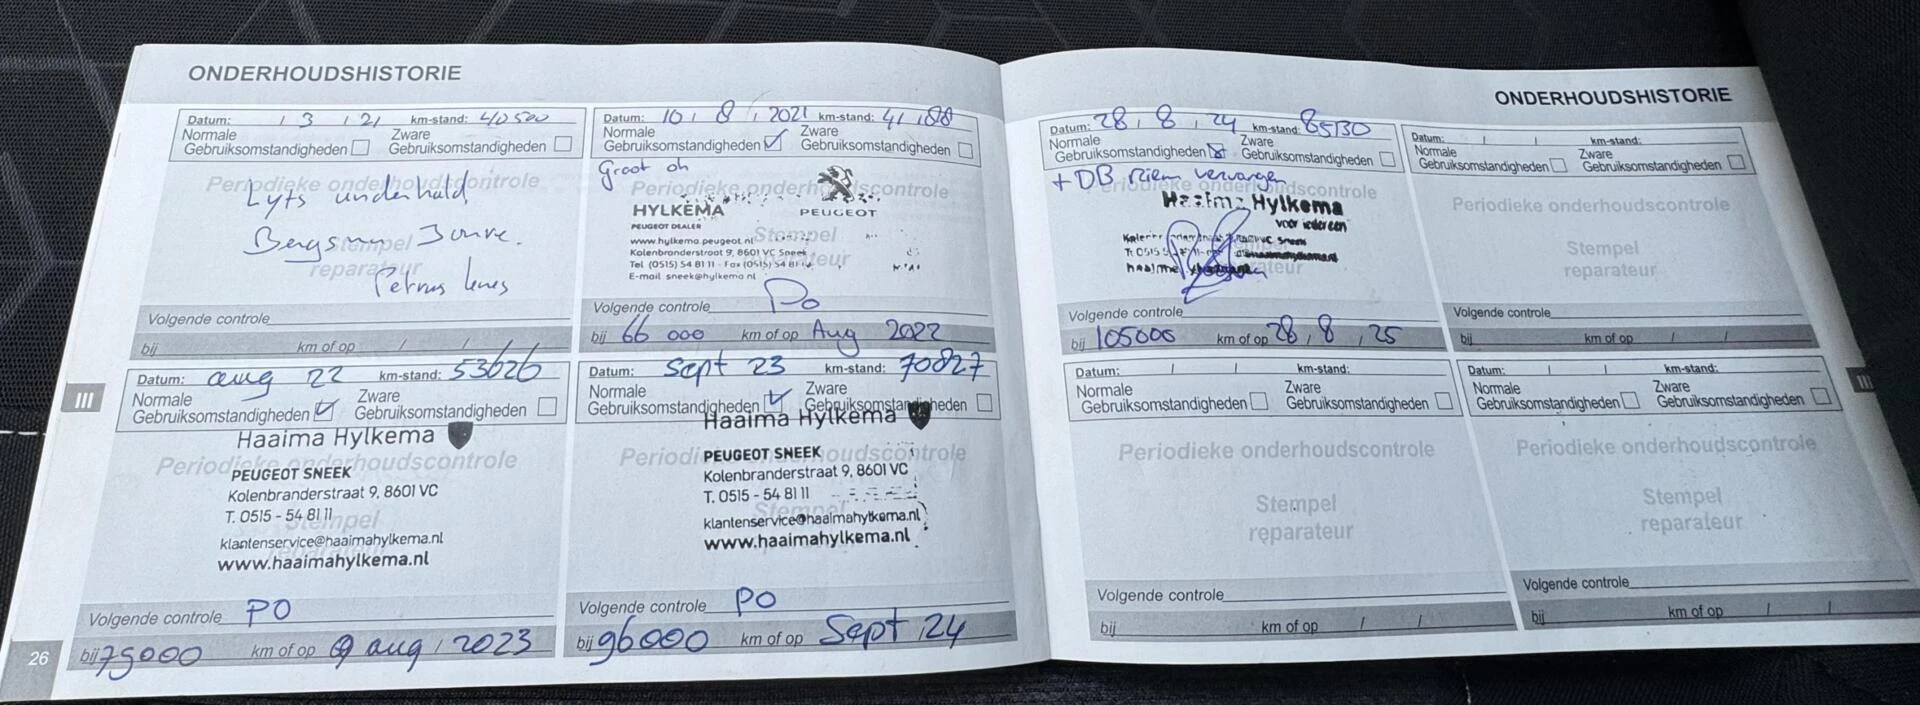 ONDERHOUDSHISTORIE
Datum: / 3 / 21 km-stand: 40500
Normale Gebruiksomstandigheden
Zware Gebruiksomstandigheden
Periodieke onderhoudscontrole
Lyts underhald
Stempel
reparateur
Volgende controle
bij km of op / /
Datum: 10 / 8 / 2021 km-stand: 41188
Normale Gebruiksomstandigheden
Zware Gebruiksomstandigheden
Groot oh
Periodieke onderhoudscontrole
HYLKEMA PEUGEOT
PEUGEOT DEALER
www.hylkema.peugeot.nl
Stempel
Kolenbranderstraat 9, 8601 VC Sneek
reparateur
Tel (0515) 54 81 11 - Fax (0515) 54 81
E-mail sneek@hylkema.nl
Volgende controle PO
bij 66 000 km of op Aug 2022
Datum: aug 22 km-stand: 53626
Normale Gebruiksomstandigheden
Zware Gebruiksomstandigheden
Haaima Hylkema
Periodieke onderhoudscontrole
PEUGEOT SNEEK
Kolenbranderstraat 9, 8601 VC
T. 0515 - 54 81 11
Stempel
klantenservice@haaimahylkema.nl
reparateur
www.haaimahylkema.nl
Volgende controle PO
bij 79000 km of op aug / 2023
Datum: Sept 23 km-stand: 70827
Normale Gebruiksomstandigheden
Zware Gebruiksomstandigheden
Haaima Hylkema
Periodieke onderhoudscontrole
PEUGEOT SNEEK
Kolenbranderstraat 9, 8601 VC
T. 0515 - 54 81 11
Stempel
klantenservice@haaimahylkema.nl
www.haaimahylkema.nl
Volgende controle PO
bij 96000 km of op Sept 24
III
26
ONDERHOUDSHISTORIE
Datum: 28 / 8 / 24 km-stand: 85130
Normale Gebruiksomstandigheden
Zware Gebruiksomstandigheden
+ DB Riem vervangen
Periodieke onderhoudscontrole
Haaima Hylkema
voor iedereen
reparateur
Volgende controle
bij 105000 km of op 28 / 8 / 25
Datum: / / km-stand:
Normale Gebruiksomstandigheden
Zware Gebruiksomstandigheden
Periodieke onderhoudscontrole
Stempel
reparateur
Volgende controle
bij km of op / /
Datum: / / km-stand:
Normale Gebruiksomstandigheden
Zware Gebruiksomstandigheden
Periodieke onderhoudscontrole
Stempel
reparateur
Volgende controle
bij km of op / /
Datum: / / km-stand:
Normale Gebruiksomstandigheden
Zware Gebruiksomstandigheden
Periodieke onderhoudscontrole
Stempel
reparateur
Volgende controle
bij km of op / /
III